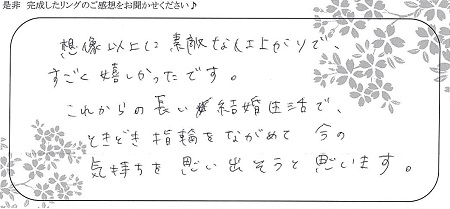 是非 完成したリングのご感想をお聞かせください♪
想像以上に素敵な仕上がりで、
すごく嬉しかったです。
これからの長い結婚生活で、
ときどき指輪をながめて今の
気持ちを思い出そうと思います。